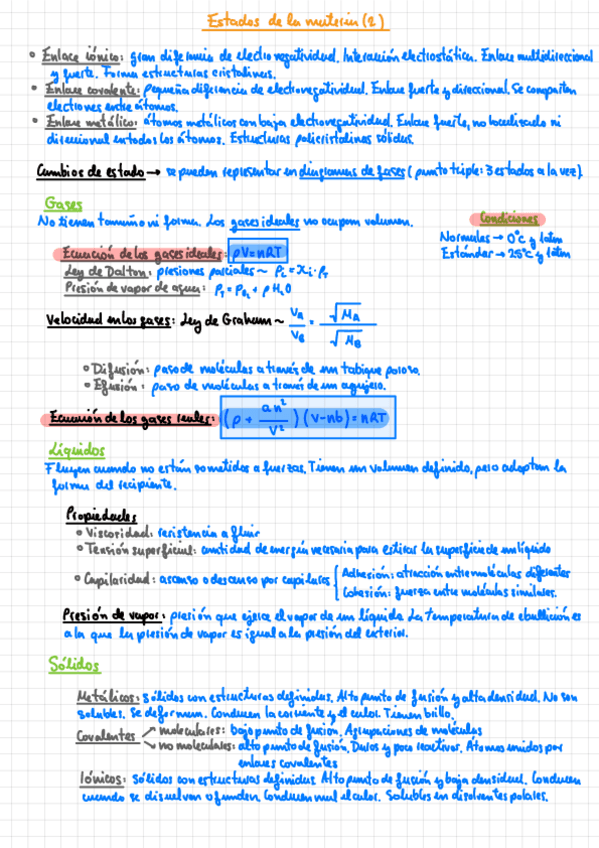 Estados de la materia (2)
• Enlace iónico: gran diferencia de electronegatividad. Interacción electrostática. Enlace multidireccional
y fuerte. Forma estructuras cristalinas.
• Enlace covalente: pequeña diferencia de electronegatividad. Enlace fuerte y direccional. Se comparten
electrones entre átomos.
• Enlace metálico: átomos metálicos con baja electronegatividad. Enlace fuerte, no localizado ni
direccional en todos los átomos. Estructuras policristalinas sólidas.
Cambios de estado → se pueden representar en diagramas de fases (punto triple: 3 estados a la vez).
Gases
No tienen tamaño ni forma. Los gases ideales no ocupan volumen.
Condiciones
Normales → 0°C y 1atm
Estándar → 25°C y 1atm
Ecuación de los gases ideales: pV=nRT
Ley de Dalton: presiones parciales ~ Pi = Xi · PT
Presión de vapor de agua: PT = PO2 + P H2O
Velocidad en los gases: Ley de Graham ~ VA/VB = √MA/√MB
• Difusión: paso de moléculas a través de un tabique poroso.
• Efusión: paso de moléculas a través de un agujero.
Ecuación de los gases reales: (p + an²/V²)(V-nb) = nRT
Líquidos
Fluyen cuando no están sometidos a fuerzas. Tienen un volumen definido, pero adoptan la
forma del recipiente.
Propiedades
• Viscosidad: resistencia a fluir
• Tensión superficial: cantidad de energía necesaria para estirar la superficie de un líquido
• Capilaridad: ascenso o descenso por capilares { Adhesión: atracción entre moléculas diferentes
Cohesión: fuerza entre moléculas similares.
Presión de vapor: presión que ejerce el vapor de un líquido. La temperatura de ebullición es
a la que la presión de vapor es igual a la presión del exterior.
Sólidos
Metálicos: sólidos con estructuras definidas. Alto punto de fusión y alta densidad. No son
solubles. Se deforman. Conducen la corriente y el calor. Tienen brillo.
Covalentes ↗ moleculares: bajo punto de fusión. Agrupaciones de moléculas
↘ no moleculares: alto punto de fusión. Duros y poco reactivos. Átomos unidos por
enlaces covalentes
Iónicos: Sólidos con estructuras definidas. Alto punto de fusión y baja densidad. Conducen
cuando se disuelven o funden. Conducen mal el calor. Solubles en disolventes polares.